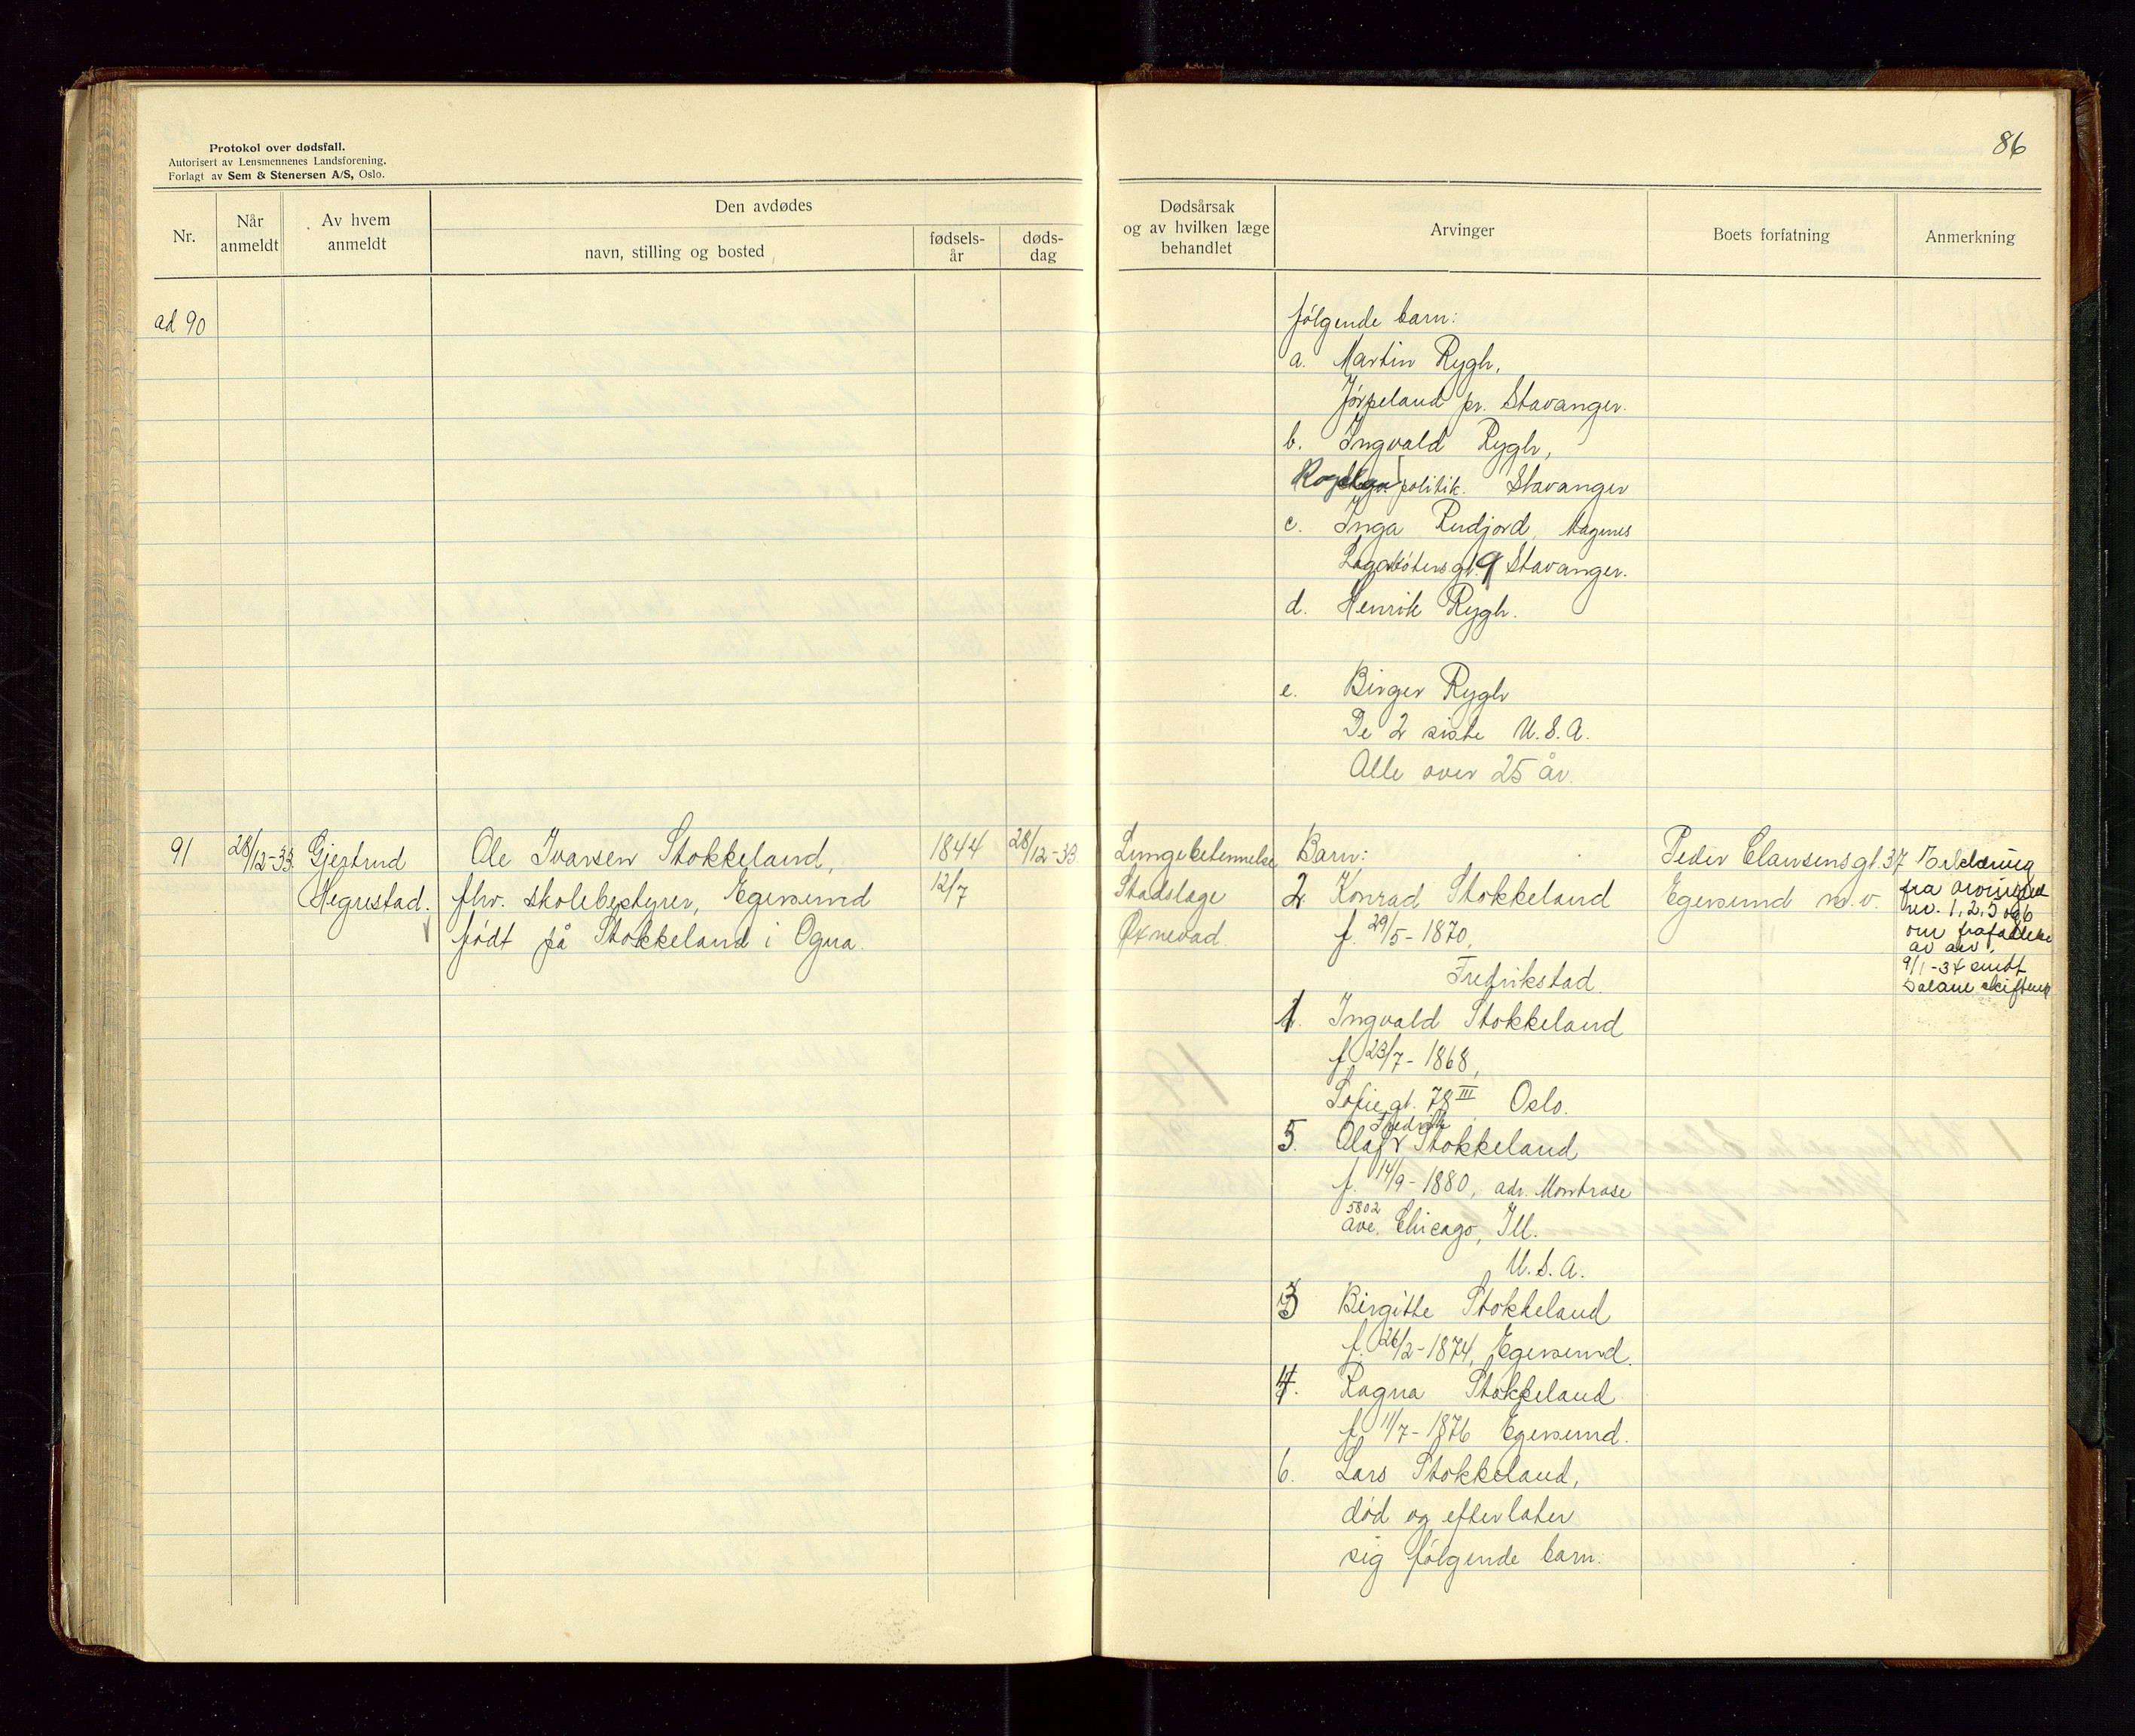 86
Protokol over dødsfall.
Autorisert av Lensmennenes Landsforening.
Forlagt av Sem & Stenersen A/S, Oslo.
Nr.
Når anmeldt
Av hvem anmeldt
Den avdødes
navn, stilling og bosted
fødsels-år
døds-dag
Dødsårsak og av hvilken læge behandlet
Arvinger
Boets forfatning
Anmerkning
ad 90
følgende barn:
a. Martin Rygh,
Jørpeland pr. Stavanger.
b. Ingvald Rygh,
politik. Stavanger
c. Inga Rudjord, Magnus
Lagabøtersgt. 9 Stavanger.
d. Henrik Rygh.
e. Birger Rygh
De 2 siste U.S.A.
Alle over 25 år.
91
28/12-33.
Gjertrud
Hegrestad.
Ole Ivarsen Stokkeland,
fhv. skolebestyrer, Egersund
født på Stokkeland i Ogna.
1844
12/7
28/12-33.
Lungebetennelse
Stadslæge
Øxnevad.
Barn:
2. Konrad Stokkeland
f. 29/5-1870,
Fredrikstad.
1. Ingvald Stokkeland
f. 23/7-1868,
Sofie gt. 78 III Oslo.
Fredrik
5. Olaf Stokkeland
f. 14/9-1880, adr. Montrose
5802
ave. Chicago, Ill.
U.S.A.
3 Birgitte Stokkeland
f. 26/2-1874, Egersund.
4. Ragna Stokkeland
f. 11/7-1876 Egersund.
6. Lars Stokkeland,
død og efterlater
sig følgende barn:
Peder Clausensgt. 37
Egersund m.v.
Erklæring
fra arvingene
nr. 1, 2, 5 og 6
om frafallelse
av arv.
9/1-34 sendt
Dalane skifterett